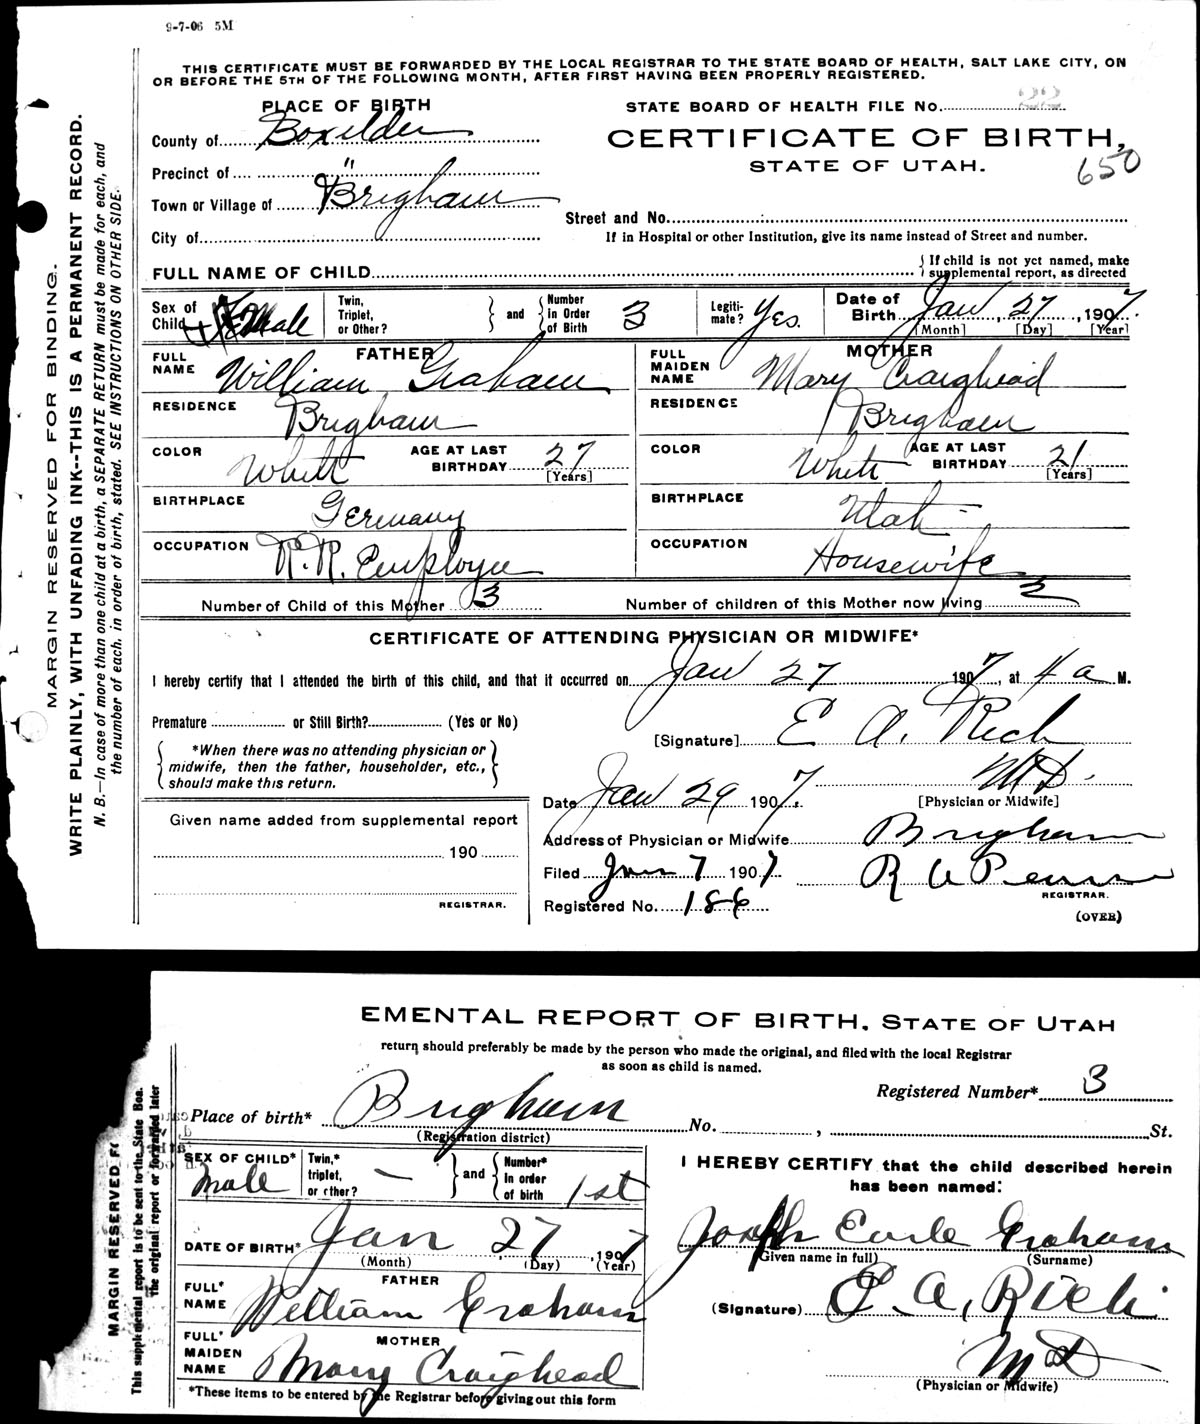 9-7-06 5M
THIS CERTIFICATE MUST BE FORWARDED BY THE LOCAL REGISTRAR TO THE STATE BOARD OF HEALTH, SALT LAKE CITY, ON
OR BEFORE THE 5TH OF THE FOLLOWING MONTH, AFTER FIRST HAVING BEEN PROPERLY REGISTERED.
PLACE OF BIRTH
STATE BOARD OF HEALTH FILE No.
County of Boxelder
CERTIFICATE OF BIRTH,
STATE OF UTAH.
650
Precinct of "
Town or Village of Brigham
Street and No.
City of
If in Hospital or other Institution, give its name instead of Street and number.
FULL NAME OF CHILD
{ If child is not yet named, make
supplemental report, as directed
Sex of Child Male
Twin, Triplet, or Other? } and { Number in Order of Birth 3
Legiti-mate? Yes.
Date of Birth Jan 27, 1907.
[Month] [Day] [Year]
FATHER
FULL NAME William Graham
RESIDENCE Brigham
COLOR White
AGE AT LAST BIRTHDAY 27
[Years]
BIRTHPLACE Germany
OCCUPATION R.R. Employee
MOTHER
FULL MAIDEN NAME Mary Craighead
RESIDENCE Brigham
COLOR White
AGE AT LAST BIRTHDAY 21
[Years]
BIRTHPLACE Utah
OCCUPATION Housewife
Number of Child of this Mother 3
Number of children of this Mother now living
CERTIFICATE OF ATTENDING PHYSICIAN OR MIDWIFE*
I hereby certify that I attended the birth of this child, and that it occurred on Jan 27 1907, at 4 a M.
Premature or Still Birth? (Yes or No)
[Signature] E A. Rich
{ *When there was no attending physician or
midwife, then the father, householder, etc.,
should make this return. }
M D.
Date Jan 29 1907.
[Physician or Midwife]
Given name added from supplemental report
190
REGISTRAR.
Address of Physician or Midwife Brigham
Filed 7 1907
R A
REGISTRAR.
Registered No. 186
(OVER)
MARGIN RESERVED FOR BINDING.
WRITE PLAINLY, WITH UNFADING INK--THIS IS A PERMANENT RECORD.
N. B.—In case of more than one child at a birth, a SEPARATE RETURN must be made for each, and
the number of each. in order of birth, stated. SEE INSTRUCTIONS ON OTHER SIDE.
EMENTAL REPORT OF BIRTH, STATE OF UTAH
return should preferably be made by the person who made the original, and filed with the local Registrar
as soon as child is named.
Registered Number* 3
Place of birth* Brigham No. , St.
(Registration district)
SEX OF CHILD* Male
Twin,* triplet, or other? — } and { Number* In order of birth 1st
I HEREBY CERTIFY that the child described herein
has been named:
Joseph Earle Graham
(Given name in full) (Surname)
DATE OF BIRTH* Jan 27, 1907
(Month) (Day) (Year)
FATHER
FULL* NAME William Graham
(Signature) E. A. Rich
M D
(Physician or Midwife)
MOTHER
FULL* MAIDEN NAME Mary Craighead
*These items to be entered by the Registrar before giving out this form
MARGIN RESERVED FO
This supplemental report is to be sent to the State Boa.
The original report or forwarded later